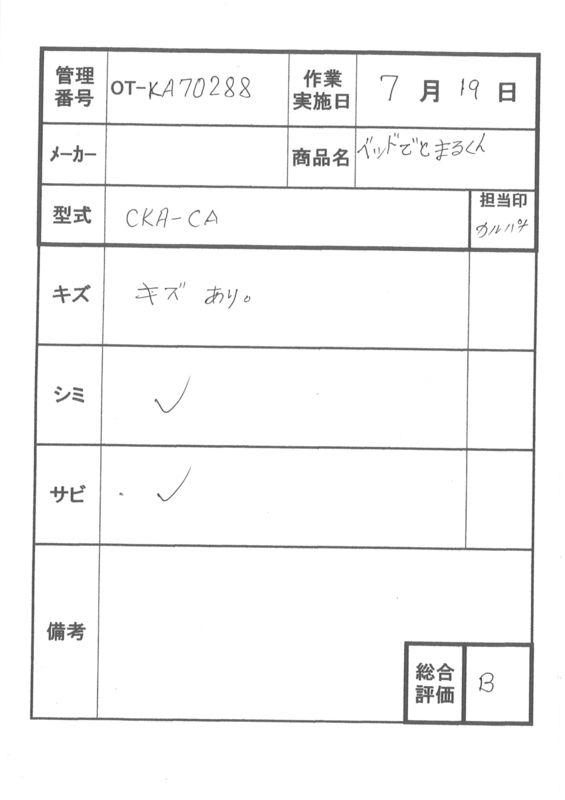 管理番号 OT-KA70288 作業実施日 7月19日
メーカー 商品名 ベッドでとまるくん
型式 CKA-CA 担当印 カルパナ
キズ キズ あり。
シミ ✓
サビ ✓
備考
総合評価 B